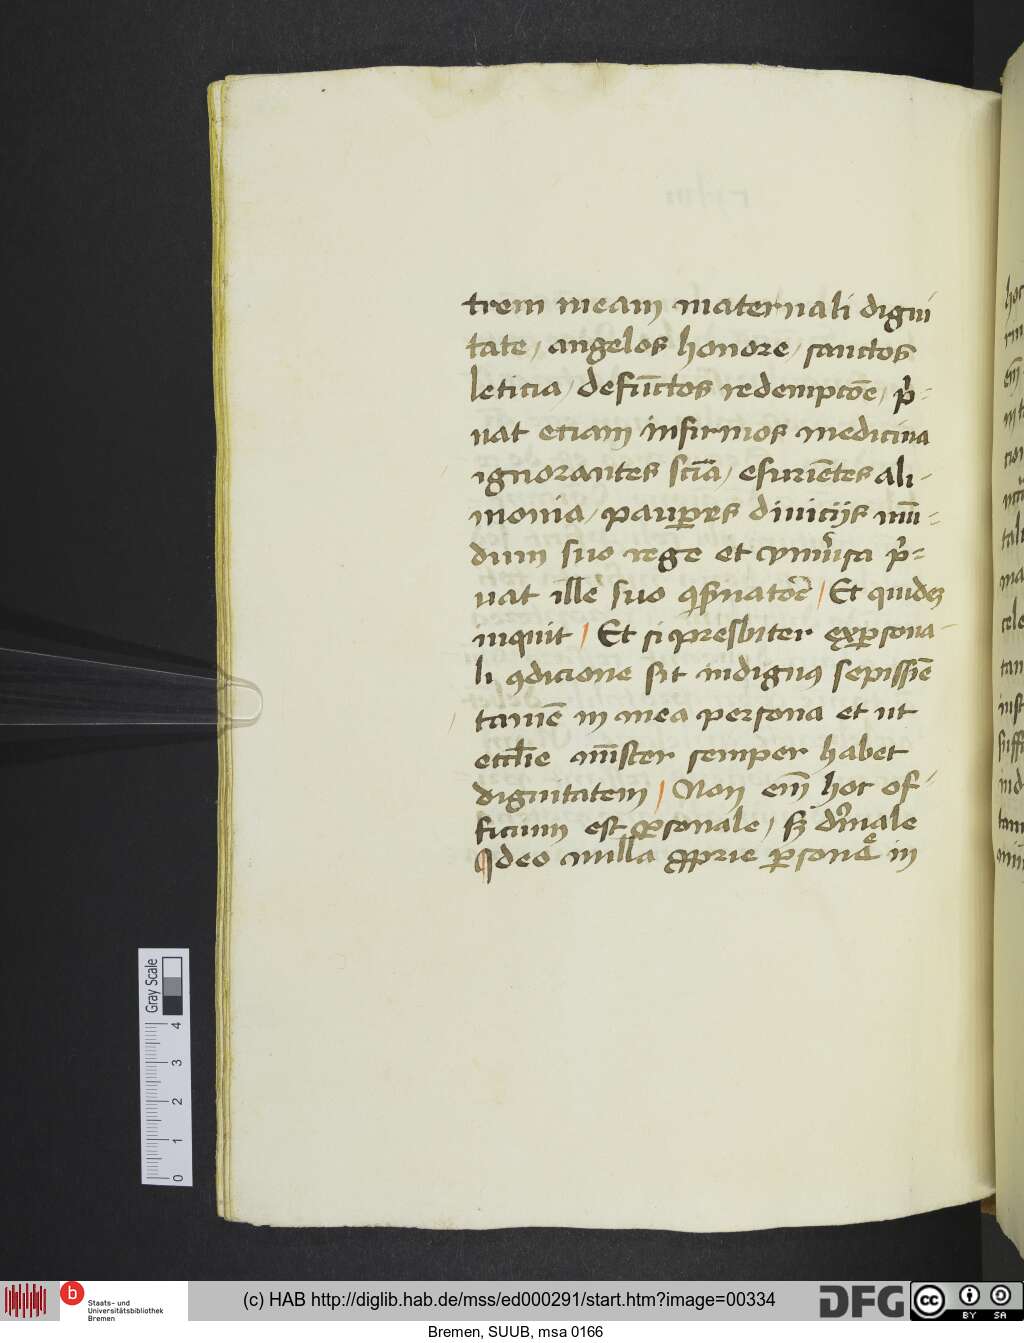 trem meam maternali digni
tate / angelos honore / sanctos
leticia / defūctos redempcōe / p̄ =
uat etiam infirmos medicina
ignorantes sciā / esuriētes ali -
monia / paup̱es diuicijs mū =
dum suo rege et
uat ille suo / Et quidē
inquit / Et si presbiter ex p̱sona
li ꝯdicione sit indignꝰ sepissīe
tamē in mea persona et ut
eccl̄ie mīster semper habet
dignitatem / Non em̄ hoc of -
ficium est p̱sonale / sꝫ
deo nulla ꝓprie p̱sone in
Gray Scale
0 1 2 3 4
b
Staats- und
Universitätsbibliothek
Bremen
(c) HAB http://diglib.hab.de/mss/ed000291/start.htm?image=00334
DFG
cc BY SA
Bremen, SUUB, msa 0166